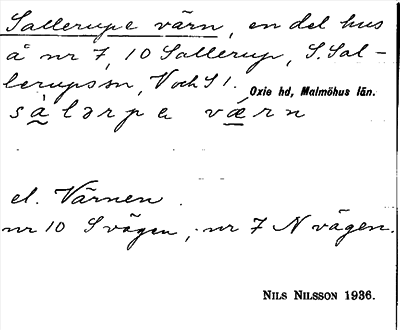 Sallerups värn, en del hus
å nr 7, 10 Sallerup, S. Sal-
lerups sn, V och S 1. Oxie hd, Malmöhus län.
sàlərpa værn
el. Värnen.
nr 10 S vägen, nr 7 N vägen.
NILS NILSSON 1936.